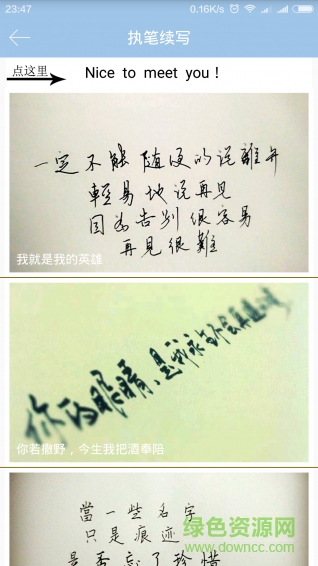 23:47
0.16K/s
执笔续写
点这里
Nice to meet you!
一定不能随便的说離开
輕易地说再见
因为告别很容易
再見很難
我就是我的英雄
你的眼睛,是我永
你若撒野,今生我把酒奉陪
當一些名字
只是痕迹
是否忘了珍惜
绿色资源网
www.downcc.com